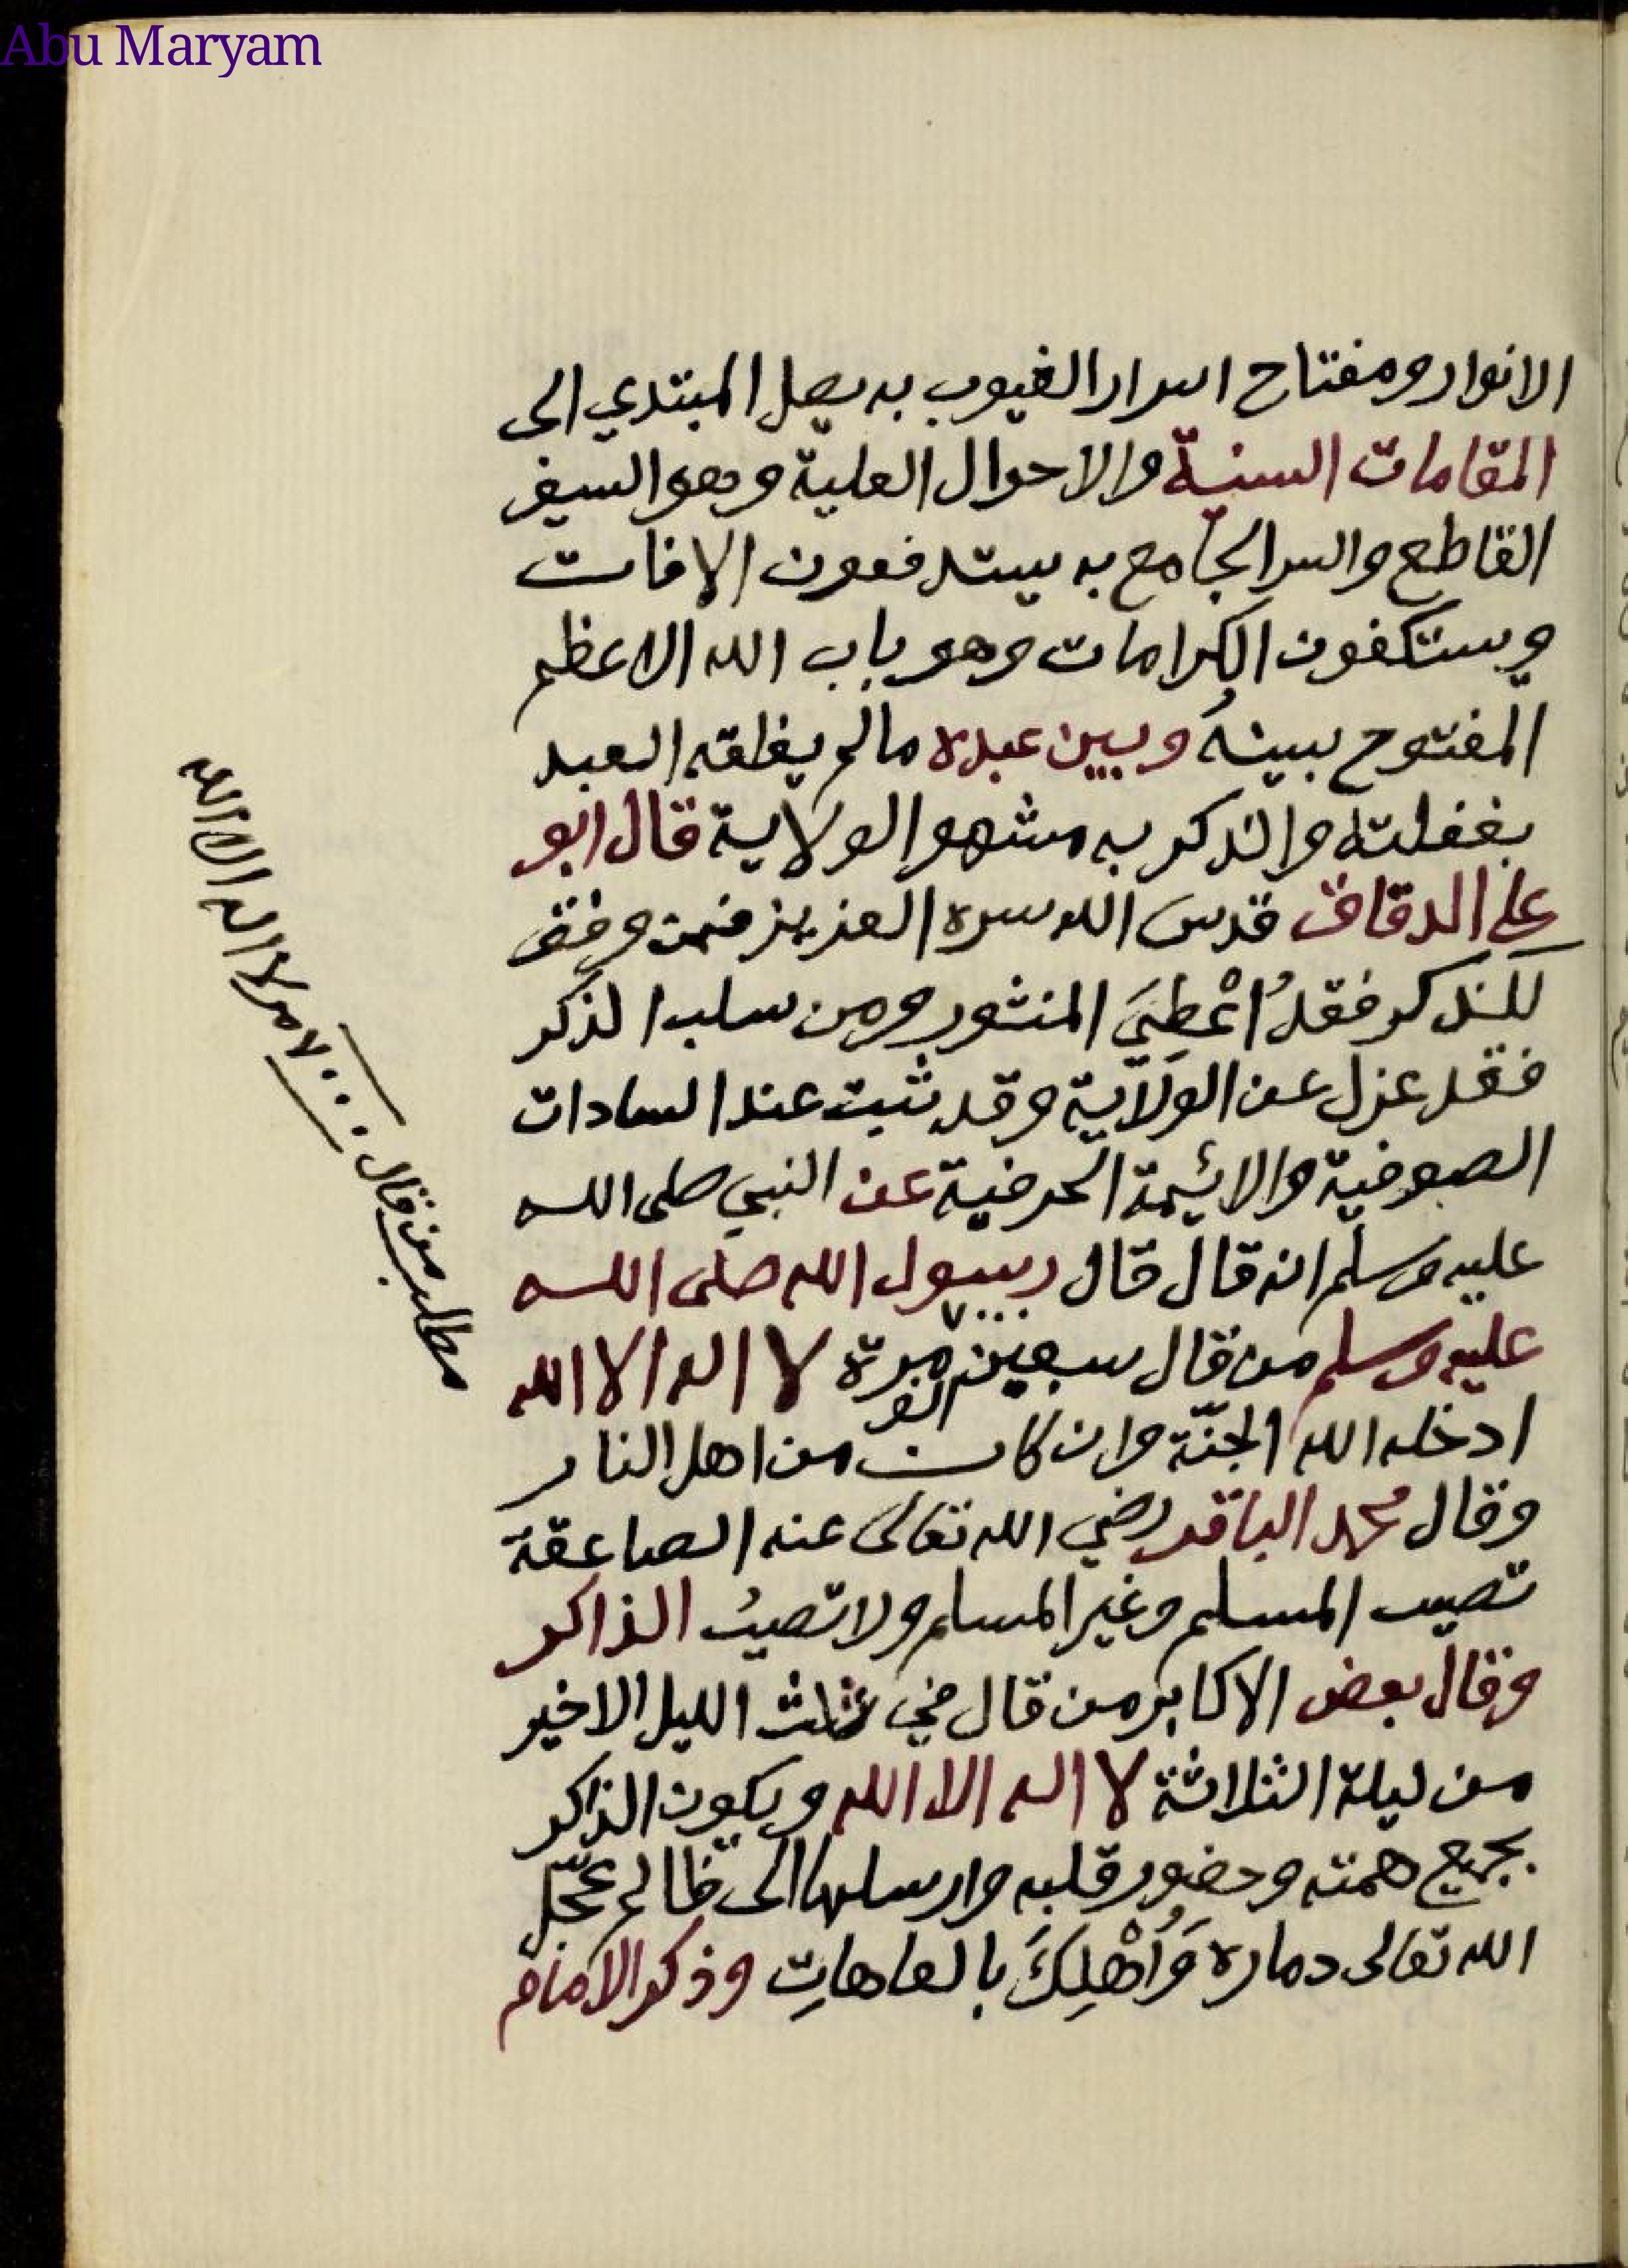 Abu Maryam
الانوار ومفتاح اسرار الغيوب به يصل المبتدي الى
المقامات السنية والاحوال العلية وهو السيف
القاطع والسر الجامع به يستدفعون الافات
ويستكفون الكرامات وهو باب الله الاعظم
المفتوح بينهُ وبين عبده مالم يغلقه العبد
بغفلته والذكر به مشهو الولاية قال ابو
علي الدقاق قدس الله سره العزيز فمن وفق
للذكر فقد اُعْطِيَ المنشور ومن سلب الذكر
فقد عزل عن الولَاية وقد ثبت عند السادات
الصوفية والائيمة الحرفية عن النبي صلى الله
عليه وسلم انه قال قال رسول الله صلى الله
٧٠٠٠٠
عليه وسلم من قال سبعين الف مرة لا اله الا الله
ادخله الله الجنّة وان كان من اهل النار
وقال محمد الباقر رضي الله تعالى عنه الصاعقة
تصيب المسلم وغير المسلم ولا تصيبُ الذاكر
وقال بعض الاكابر من قال في ثلث الليل الاخير
من ليلة الثلاثة لا اله الا الله ويكون الذاكر
بجميع همته وحضور قلبه وارسلها الى ظالم عجّل
الله تعالى دماره وَاُهْلِكَ بالعاهاتِ وذكر الامام
مطلب من قال ٧٠٠٠٠ مر لا اله الا الله